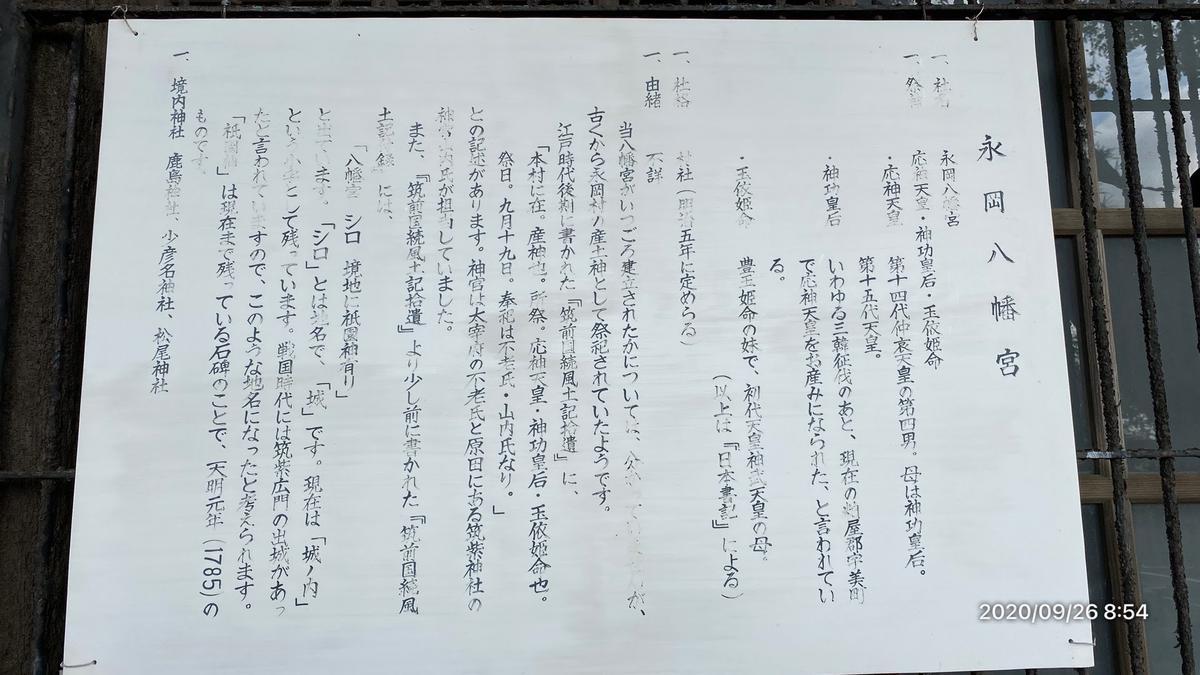 永岡八幡宮
一、社名
永岡八幡宮
一、祭神
応神天皇・神功皇后・玉依姫命
・応神天皇
第十四代仲哀天皇の第四男。母は神功皇后。
第十五代天皇。
・神功皇后
いわゆる三韓征伐のあと、現在の粕屋郡宇美町
で応神天皇をお産みになられた、と言われてい
る。
・玉依姫命
豊玉姫命の妹で、初代天皇神武天皇の母。
(以上は『日本書記』による)
一、社格
村社(明治五年に定めらる)
一、由緒
不詳
当八幡宮がいつごろ建立されたかについては、が、
古くから永岡村の産土神として祭祀されていたようです。
江戸時代後期に書かれた『筑前国続風土記拾遺』に、
「本村に在。産神也。所祭。応神天皇・神功皇后・玉依姫命也。
祭日。九月十九日。奉祀は不老氏・山内氏なり。」
との記述があります。神宮は太宰府の不老氏と原田にある筑紫神社の
神官山内氏が担当していました。
また、『筑前国続風土記拾遺』より少し前に書かれた『筑前国続風
土記附録』には、
「八幡宮 シロ 境地に祇園神有り」
と出ています。「シロ」とは地名で、「城」です。現在は「城ノ内」
という小字として残っています。戦国時代には筑紫広門の出城があっ
たと言われていますので、このような地名になったと考えられます。
「祇園神」は現在まで残っている石碑のことで、天明元年(1785)の
ものです。
一、境内神社 鹿島神社、少彦名神社、松尾神社
2020/09/26 8:54